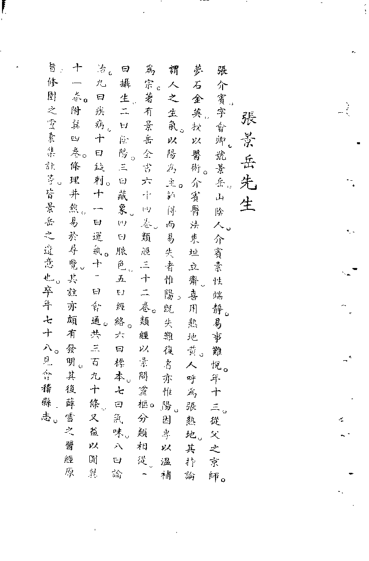 張景岳先生
張介賓字會卿號景岳山陰人介賓素性端靜易事難悅年十三從父之京師。
夢石金英授以醫術介賓醫法東垣立齋喜用熟地黃人呼為張熟地其持論
謂人之生氣以陽為主難得而易失者惟陽既失難復者亦惟陽因專以溫補
為宗著有景岳全書六十四卷類經三十二卷類經以素問靈樞分類相從一
曰攝生二曰陰陽三曰藏象四曰脈色五曰經絡六曰標本七曰氣味八曰論
治九曰疾病十曰鍼刺十一曰運氣十二曰會通共三百九十條又益以圖翼
十一卷附翼四卷條理井然易於尋覽其註亦頗有發明其後薛雪之醫經原
旨修園之靈素集註等皆景岳之遺意也卒年七十八見會稽縣志。